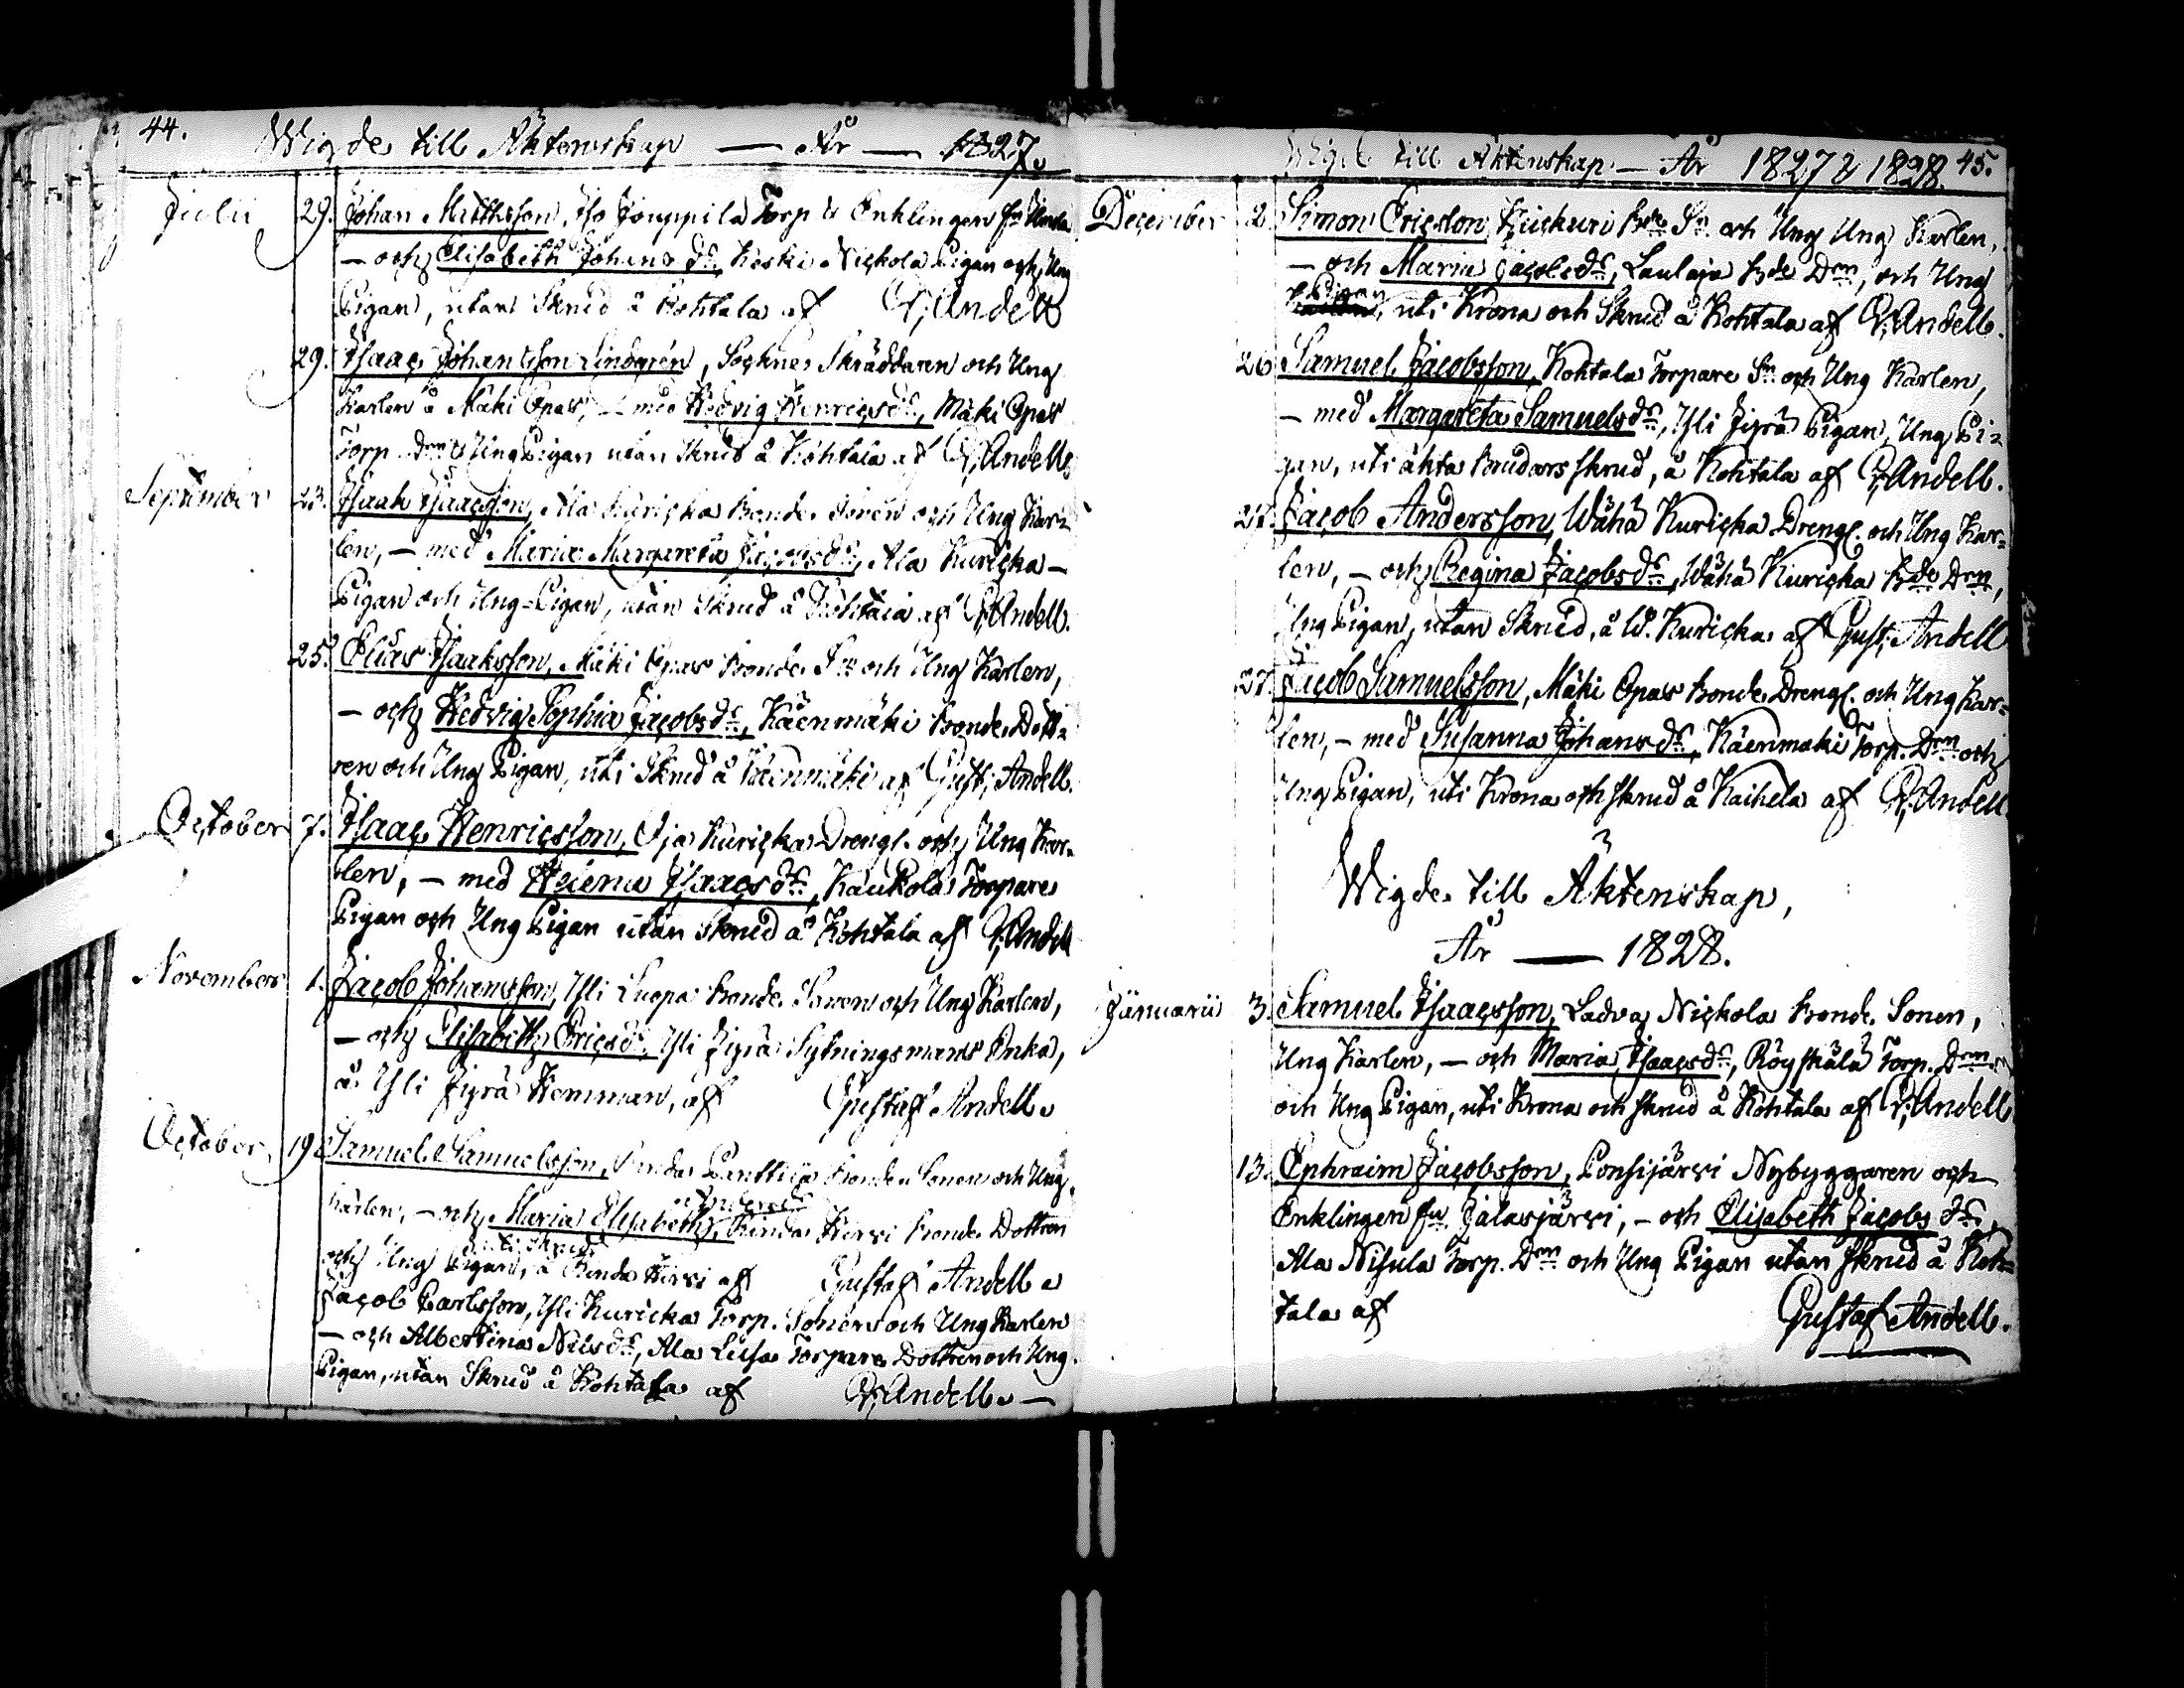 44.
Wigde till Äktenskap — År — 1827.
Julii 29. Johan Matthsson, Iso Jouppila Torp. Enklingen
— och Elisabeth Johans dr, Koski Nickola Pigan och Ung
Pigan, utan Skrud å Kohtala af G. Andell
29. Isaac Johansson Lindgrén, Sockne Skräddaren och Ung
Karlen å Mäki Opas, — med Hedvig Henricsdr, Mäki Opas
Torp. Drn Ung Pigan utan Skrud å Kohtala af G. Andell
September 23. Isaak Isaacsson, Ala Kuricka Bonde Sonen och Ung Kar-
len, — med Maria Margareta Jacobsdr, Ala Kuricka —
Pigan och Ung Pigan, utan Skrud å Kohtala af G. Andell.
25. Elias Isaksson, Mäki Opas Bonde Sn och Ung Karlen,
— och Hedvig Sophia Jacobsdr, Käenmäki Bonde Dott-
ren och Ung Pigan, uti Skrud å Käenmäki af Gust. Andell.
October 7. Isaac Henricsson, Oja Kuricka Drengl. och Ung Kar-
len, — med Helena Isaacsdr, Kaukola Torpare
Pigan och Ung Pigan utan Skrud å Kohtala af G. Andell
November 1. Jacob Johansson, Yli Luopa Bonde Sonen och Ung Karlen,
— och Elisabeth Ericsdr, Yli Jyrä Sytningsmans Enka,
å Yli Jyrä Hemman, af Gustaf Andell.
October 19. Samuel Samuelsson, Penttilä Bonde Sonen och Ung
karlen, — och Maria Elisabeth Andersdr Hirvi Bonde Dottren
och Ung Pigan, uti Skrud å Hirvi af Gustaf Andell.
Jacob Carlsson, Yli Kuricka Torp. Sonen och Ung Karlen
— och Albertina Nilsdr, Ala Luopa Torpare Dottren och Ung
Pigan, utan Skrud å Kohtala af G. Andell. —
Wigde till Äktenskap. — År 1827 & 1828. 45.
December 2. Simon Ericsson, Keskuri Bde Sn och Ung Karlen,
— och Maria Jacobsdr, Laulaja Bde Drn, och Ung
Pigan, uti Krona och Skrud å Kohtala af G. Andell.
26. Samuel Jacobsson, Kohtala Torpare Sn och Ung Karlen,
— med Margareta Samuelsdr, Yli Jyrä Pigan, Ung Pi-
gan, uti äkta brudars skrud, å Kohtala af G. Andell.
27. Jacob Andersson, Wähä Kuricka Drengl. och Ung Kar-
len, — och Regina Jacobsdr, Wähä Kuricka Bde Drn,
Ung Pigan, utan Skrud, å W. Kuricka af Gust. Andell
27. Jacob Samuelsson, Mäki Opas Bonde Drengl. och Ung Kar-
len, — med Susanna Johansdr, Käenmäki Torp. Drn och
Ung Pigan, uti Krona och skrud å Kaihela af G. Andell
Wigde till Äktenskap,
År — 1828.
Januarii 3. Samuel Isaacsson, Ladva Nickola Bonde Sonen,
Ung Karlen, — och Maria Isaacsdr, Röyskälä Torp. Drn
och Ung Pigan, uti Krona och skrud å Kohtala af G. Andell
13. Ephraim Jacobsson, Ponsijärvi Nybyggaren och
Enklingen fn. Jalasjärvi, — och Elisabeth Jacobs dr,
Ala Nisula Torp. Drn och Ung Pigan utan skrud å Koh-
tala af Gustaf Andell.